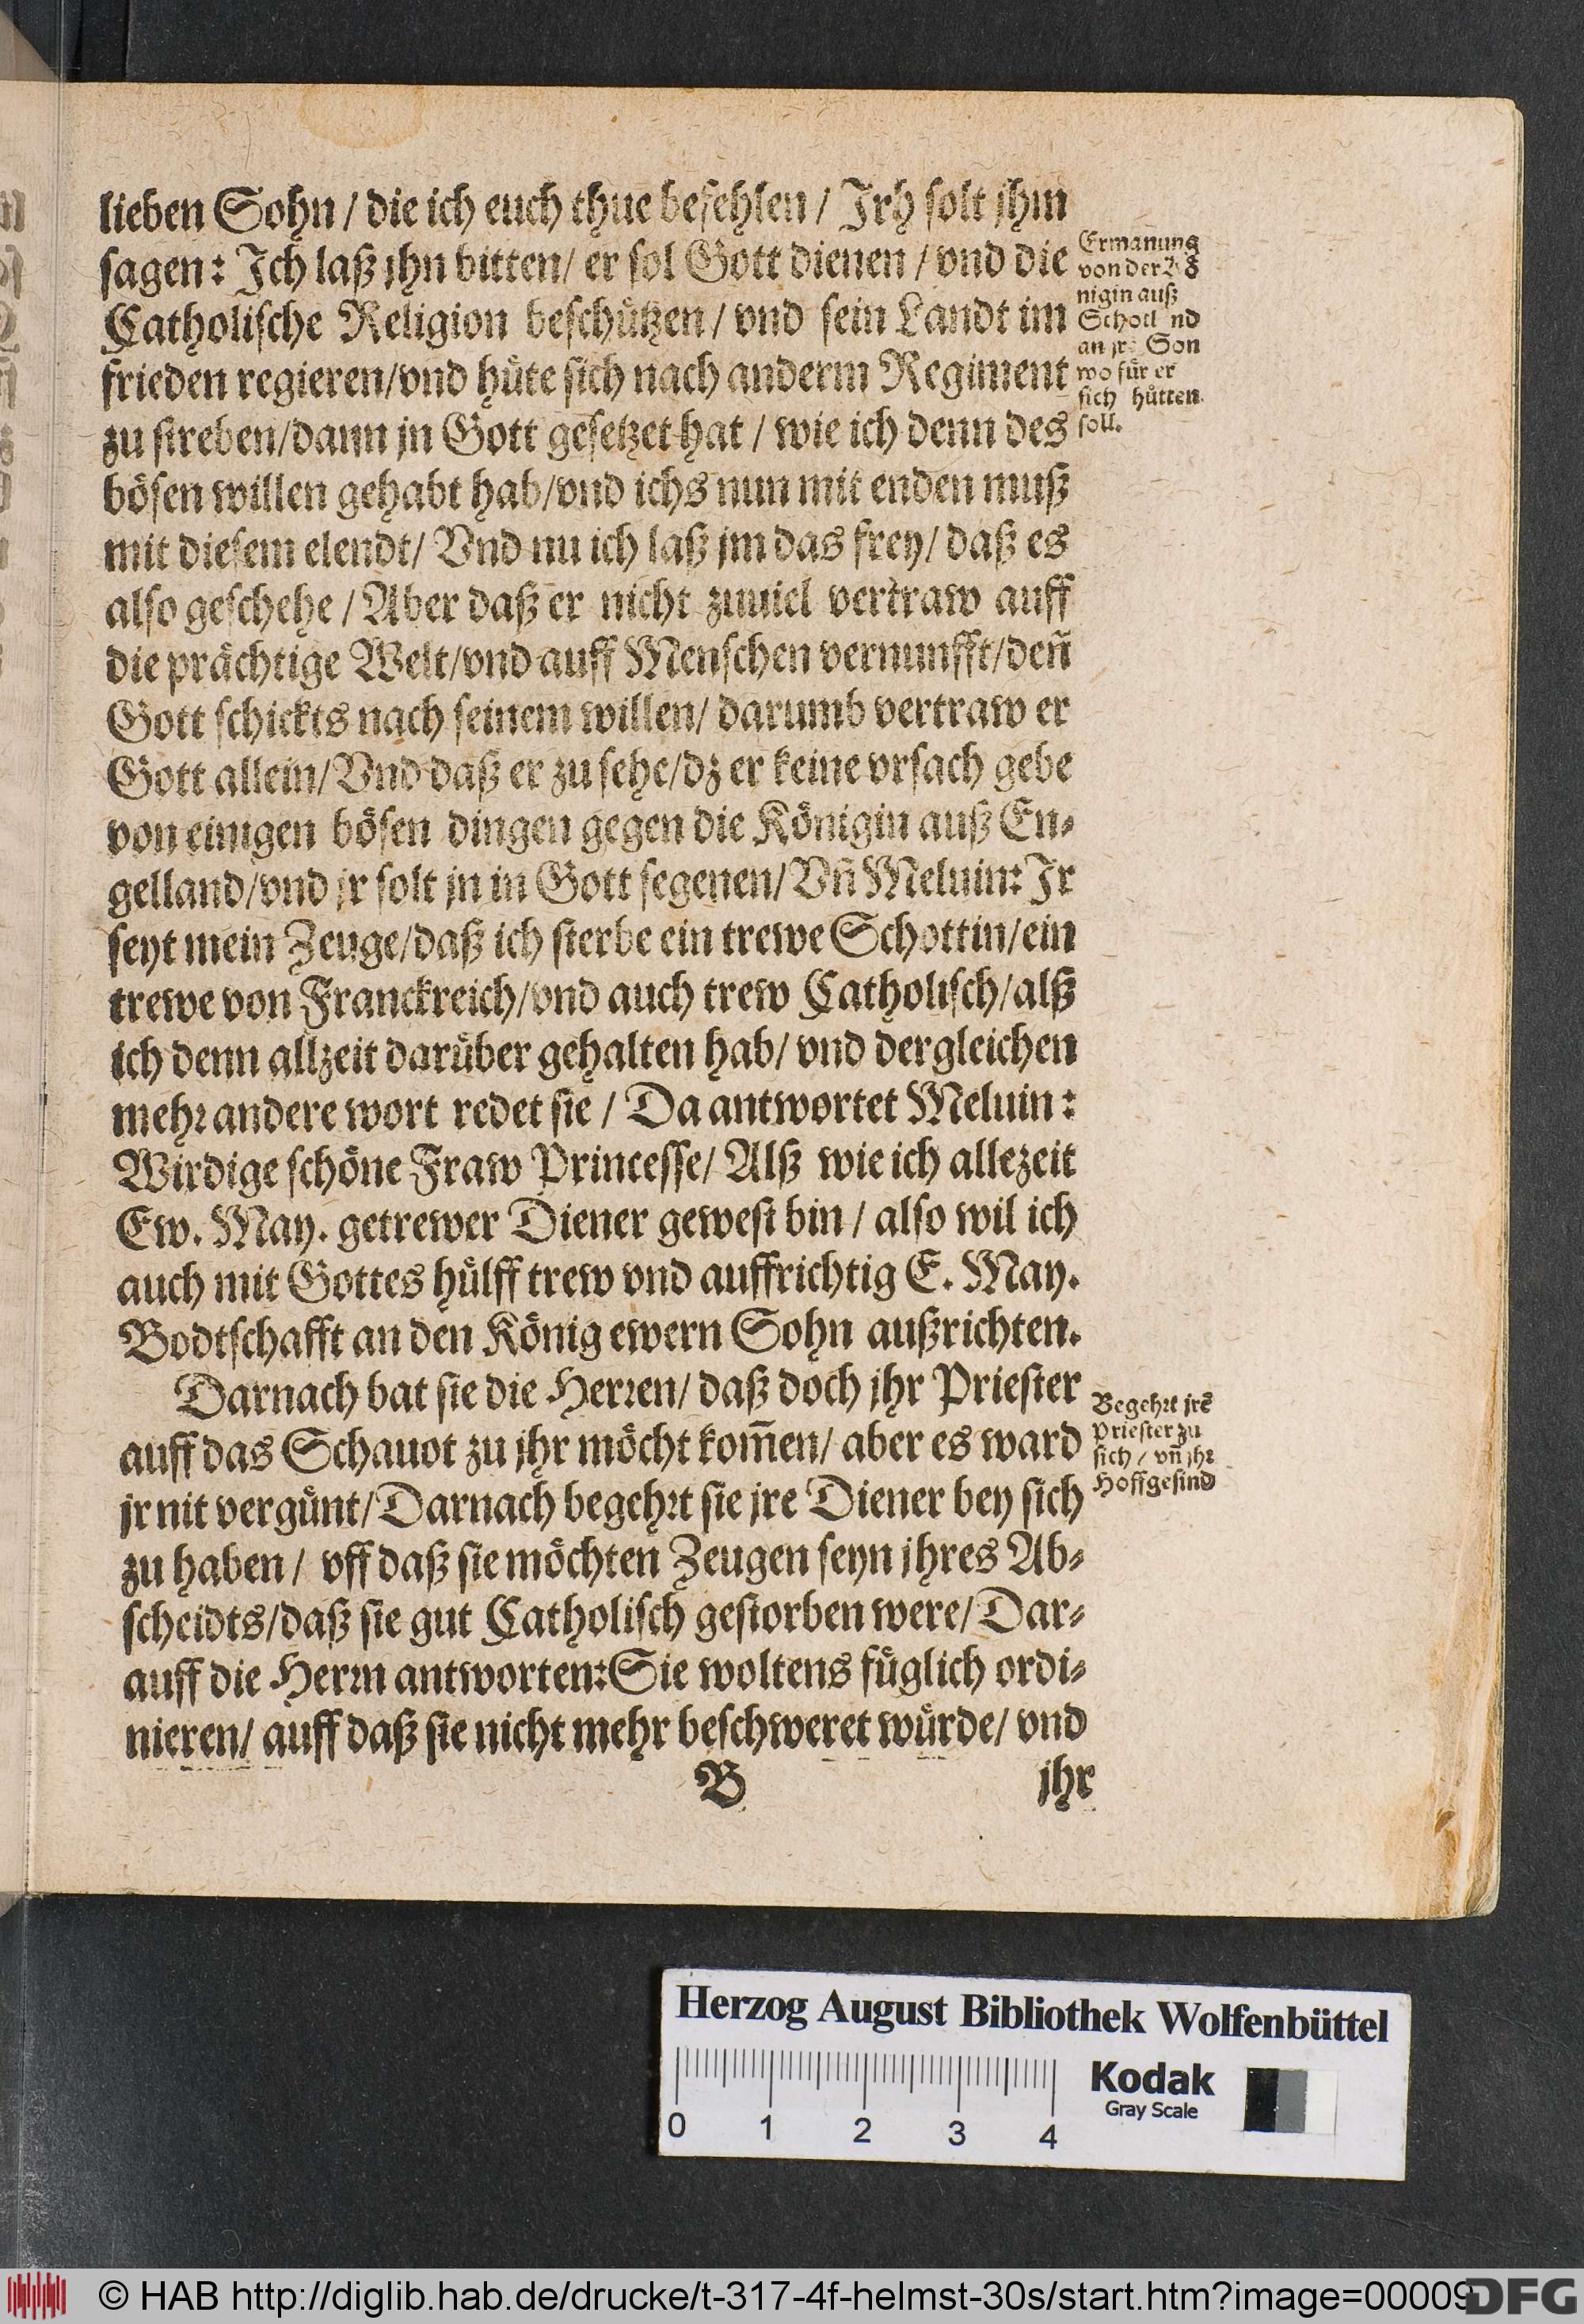 lieben Sohn / die ich euch thue befehlen / Irh ſolt jhm
ſagen: Ich laß jhn bitten / er ſol Gott dienen / vnd die
Catholiſche Religion beſchützen / vnd ſein Landt im
frieden regieren / vnd hüte ſich nach anderm Regiment
zu ſtreben / dann jn Gott geſetzet hat / wie ich denn des
böſen willen gehabt hab / vnd ichs nun mit enden muß
mit dieſem elendt / Vnd nu ich laß jm das frey / daß es
alſo geſchehe / Aber daß er nicht zuuiel vertraw auff
die prächtige Welt / vnd auff Menſchen vernunfft / deñ
Gott ſchickts nach ſeinem willen / darumb vertraw er
Gott allein / Vnd daß er zu ſehe / dz er keine vrſach gebe
von einigen böſen dingen gegen die Königin auß En⸗
gelland / vnd jr ſolt jn in Gott ſegenen / Vñ Meluin: Ir
ſeyt mein Zeuge / daß ich ſterbe ein trewe Schottin / ein
trewe von Franckreich / vnd auch trew Catholiſch / alß
ich denn allzeit darüber gehalten hab / vnd dergleichen
mehr andere wort redet ſie / Da antwortet Meluin:
Wirdige ſchöne Fraw Princeſſe / Alß wie ich allezeit
Ew. May. getrewer Diener geweſt bin / alſo wil ich
auch mit Gottes hülff trew vnd auffrichtig E. May.
Bodtſchafft an den König ewern Sohn außrichten.
Darnach bat ſie die Herren / daß doch jhr Prieſter
auff das Schauot zu jhr möcht kom̃en / aber es ward
jr nit vergünt / Darnach begehrt ſie jre Diener bey ſich
zu haben / vff daß ſie möchten Zeugen ſeyn jhres Ab⸗
ſcheidts / daß ſie gut Catholiſch geſtorben were / Dar⸗
auff die Herrn antworten: Sie woltens füglich ordi⸗
nieren / auff daß ſie nicht mehr beſchweret würde / vnd
B
jhr
Ermanung
von der
nigin auß
Schotl nd
an Son
wo für er
ſich hütten
ſoll.
Begehrt jrẽ
Prieſter zu
ſich / vñ jhr
Hoffgeſind
Herzog August Bibliothek Wolfenbüttel
Kodak
Gray Scale
0 1 2 3 4
© HAB http://diglib.hab.de/drucke/t-317-4f-helmst-30s/start.htm?image=00009
DFG